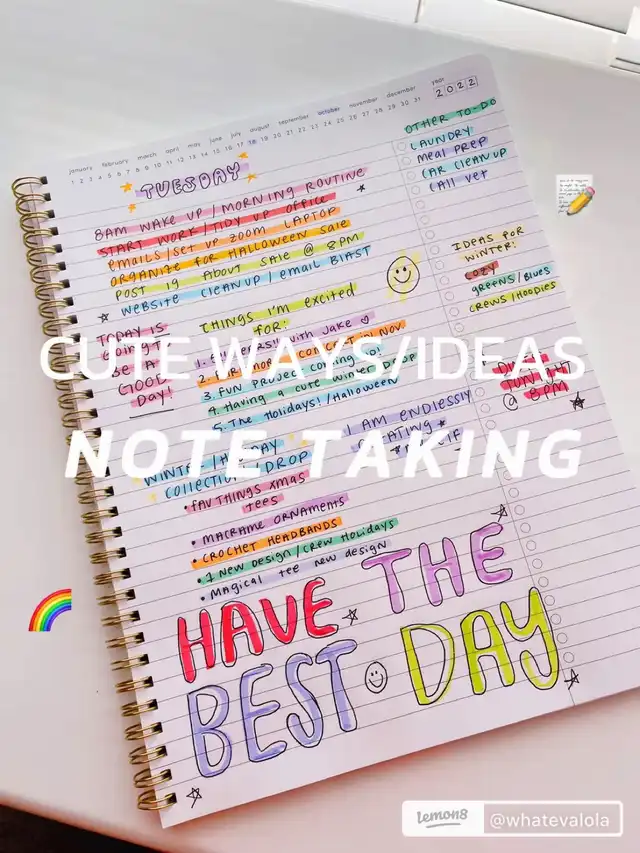 january february march april may june july august september october november december year
1 2 3 4 5 6 7 8 9 10 11 12 13 14 15 16 17 18 19 20 21 22 23 24 25 26 27 28 29 30 31
2022
TUESDAY
8AM WAKE UP/MORNING ROUTINE
START WORK/TIDY UP OFFICE
EMAILS/SET UP ZOOM LAPTOP
ORGANIZE FOR HALLOWEEN SALE
POST IG ABOUT SALE @ 8PM
WEBSITE CLEANUP/EMAIL BLAST
OTHER TO-DO
LAUNDRY!
MEAL PREP
CAR CLEAN UP
CALL VET
IDEAS FOR
WINTER:
COZY
GREENS/BLUES
CREWS/HOODIES
TODAY IS
GOING TO
BE A
GOOD
DAY!
THINGS I'M EXCITED
FOR:
1. WITH JAKE
2. CONCERT IN NOV.
3. FUN PROJECT COMING UP!
4. HAVING A CUTE WINTER DROP
5. THE HOLIDAYS!/HALLOWEEN
CUTE WAYS/IDEAS
NOTE TAKING
TONIGHT
@ 8PM
I AM ENDLESSLY
WINTER/
COLLECTION DROP
• FAV THINGS XMAS
TEES
• MACRAME ORNAMENTS
• CROCHET HEADBANDS
• 7 NEW DESIGN/CREW HOLIDAYS
• MAGICAL TEE NEW DESIGN
HAVE THE
BEST DAY
lemon8 @whatevalola